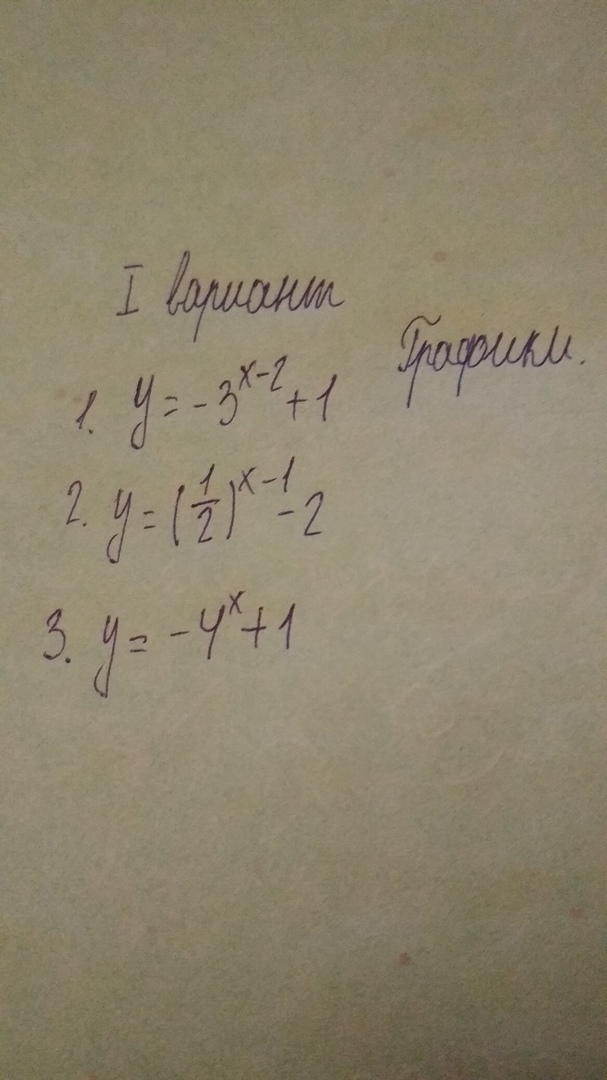 I вариант
Графики.
1. y = -3^{x-2} + 1
2. y = (\frac{1}{2})^{x-1} - 2
3. y = -4^x + 1